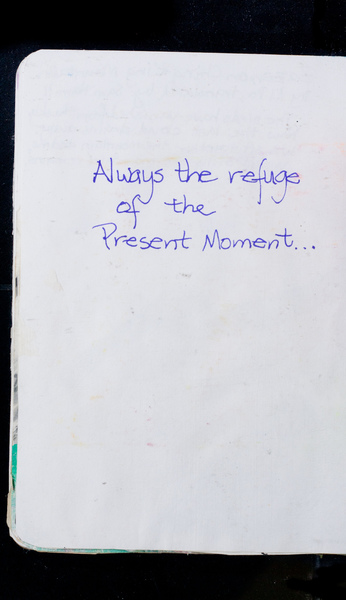 Always the refuge
of the
Present Moment...